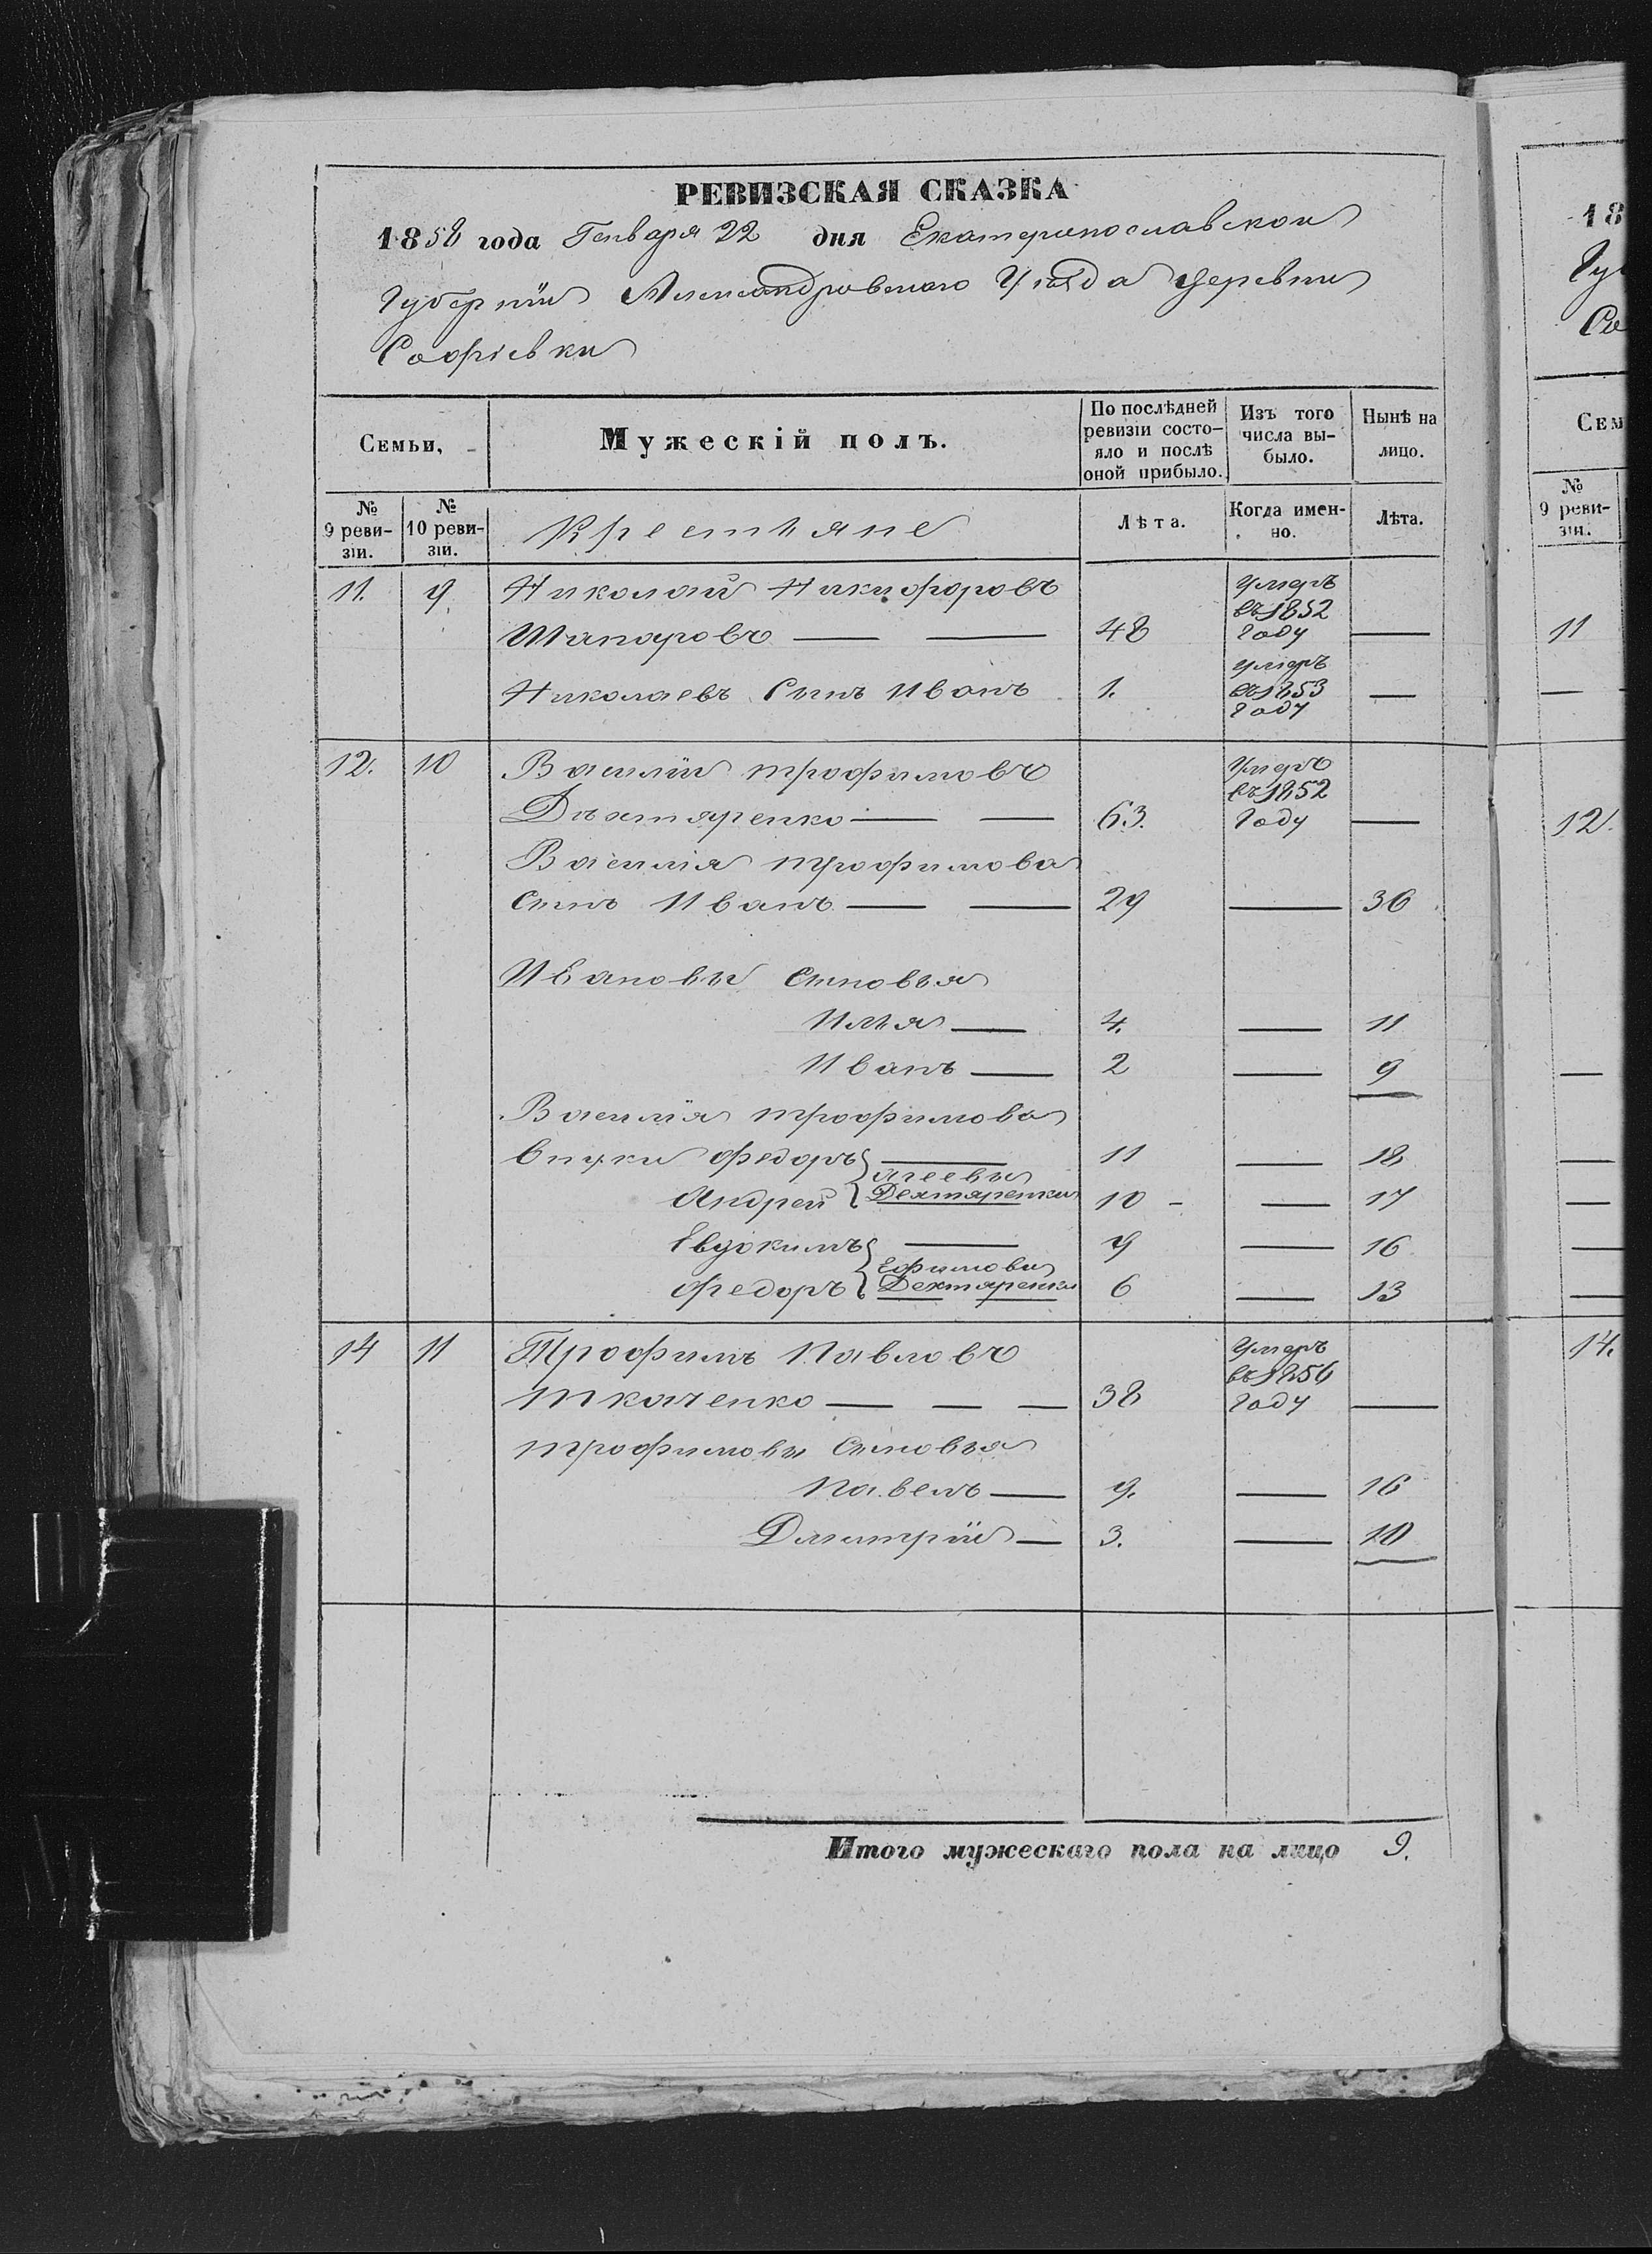 РЕВИЗСКАЯ СКАЗКА
1858 года Генваря 22 дня Екатеринославской
Губерніи Александровскаго Уѣзда Деревни
Софіевки
Семьи,
Мужескій полъ.
По послѣдней ревизіи состо-
яло и послѣ
оной прибыло.
Изъ того
числа вы-
было.
Нынѣ на
лицо.
№
9 реви-
зіи.
№
10 реви-
зіи.
Крестьяне
Лѣта.
Когда имен-
но.
Лѣта.
11. 9 Николай Никифоровъ Умеръ
въ 1852
Шапаровъ — — 48 году —
Николаевъ Сынъ Иванъ 1. умеръ
въ 1853
году —
12. 10 Василій трофимовъ Умеръ
въ 1852
Дехтяренко — — 63. году —
Василія трофимова
Сынъ Иванъ — — 29 — 36
Ивановы Сыновья
Илья — 4. — 11
Иванъ — 2 — 9
Василія трофимова
Внуки Федоръ — 11 — 18
Агеевы
Андрей Дехтяренки 10 - — 17
Евдокимъ — 9 — 16
Ефимовы
Федоръ Дехтяренки 6 — 13
14 11 Трофимъ Павловъ Умеръ
въ 1856
Ткаченко — — — 38 году —
трофимовы Сыновья
Павелъ — 9. — 16
Дмитрій — 3. — 10
Итого мужескаго пола на лицо 9.
18
Гу
Со
Сем
№
9 реви-
зіи.
11
12.
14.